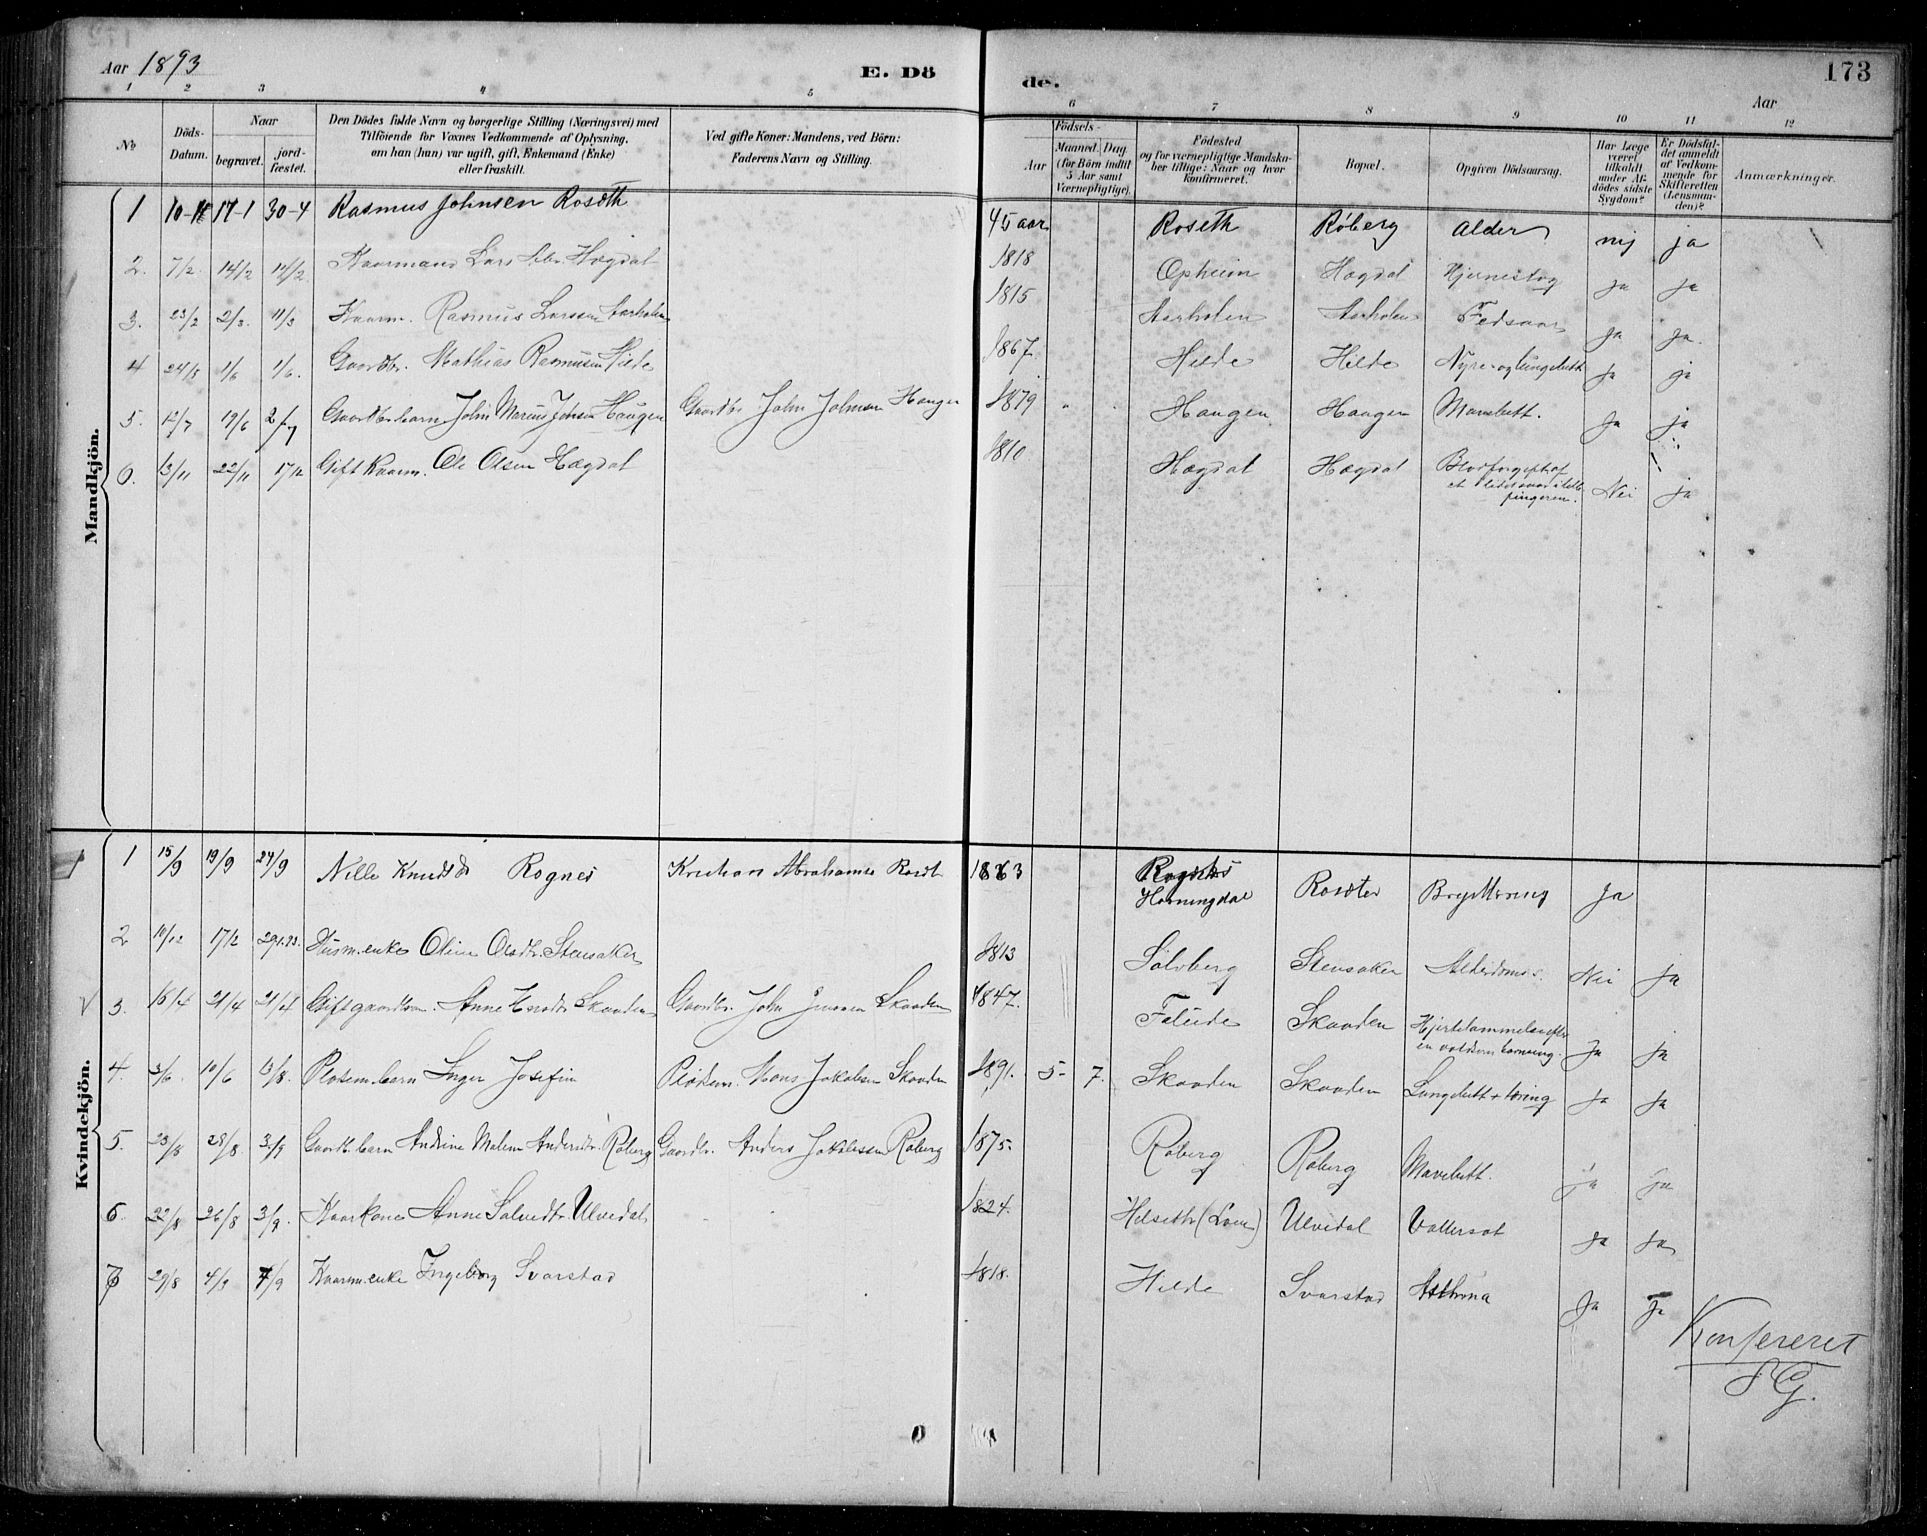 Aar 1893
E. Dö
de.
Aar
173
1 2 3 4 5
6 7 8 9 10 11 12
No
Döds-
Datum.
Naar
begravet.
jord-
fæstet.
Den Dödes fulde Navn og borgerlige Stilling (Næringsvei) med
Tilföiende for Voxnes Vedkommende af Oplysning,
om han (hun) var ugift, gift, Enkemand (Enke)
eller fraskilt.
Ved gifte Koner: Mandens, ved Börn:
Faderens Navn og Stilling.
Födsels-
Aar
Maaned. Dag
(for Börn indtil
5 Aar samt
Værnepligtige).
Födested
og for værnepligtige Mandska-
ber tillige: Naar og hvor
konfirmeret.
Bopæl.
Opgiven Dödsaarsag.
Har Læge
været
tilkaldt
under Af-
dödes sidste
Sygdom?
Er Dödsfal-
det anmeldt
af Vedkom-
mende for
Skifteretten
(Lensman-
den)?
Anmærkninger.
Mandkjön.
1 17-1 30-4 Rasmus Johnsen Roseth 45 aar Roseth Röberg Alder nej ja
2. 7/2 14/2 Kaarmand Lars Hægdal 1818 Opheim Hægdal Hjerneslag ja ja
3. 23/2 2/3. 11/3 Kaarm. Rasmus Larssen Aarholen 1815 Aarholen Aarholen Ja Ja.
4 24/5 1/6 1/6. Gaardbr. Mathias Rasmussen Hilde 1867. Hilde Hilde Nyre- og Lungebett. Ja ja
5. 12/7 19/6 2/7 Gaardbr. barn John Marius Johnsen Haugen Gaardbr John Johnsen Haugen 1879 Haugen Haugen Mavebett. Ja ja
6. 13/11 22/11 17/12 Gift Kaarm. Ole Olsen Hægdal 1810 Hægdal Hægdal Blodforgift. af
et lidet saar i
fingeren. Nei ja
Kvindekjön.
1 15/9 19/9 24/9 Nille Knudsd Rognes Abrahams 1863 Horningdal Brysttæring Ja
2 10/12 17/2 29/1.93. Husm. enke Oline Olsdtr. Stensaker 1813 Sölvberg Stensaker Alderdoms. Nei Ja
3. 15/4 21/4 21/4 Gift gaardkon. Anne Skaaden Gaardbr. John Jensen Skaaden 1847. Faleide Skaaden Hjertelammelse efter
en voldsom Ja ja
4. 3/6. 10/6 13/8. Pladsm. barn Inger Josefin Pladsm. Hans Jakobsen Skaaden 1891. 5- 7. Skaaden Skaaden Lungebett + tæring Ja Ja
5. 23/8 28/8 3/9 Gaardb. barn Andrine Malene Andersdtr. Röberg Gaardbr. Anders Jakobssen Röberg 1875. Röberg Röberg Mavebett. ja ja
6. 22/8 26/8 3/9. Kaarkone Anne Salvesdtr Ulvedal 1824. Helseth (Loen) Ulvedal Vattersot Ja Ja
7 29/8 4/9 7/9 Kaarm. enke Ingeborg Svarstad 1818. Hilde Svarstad Asthma Ja Ja
Konfereret
SG.